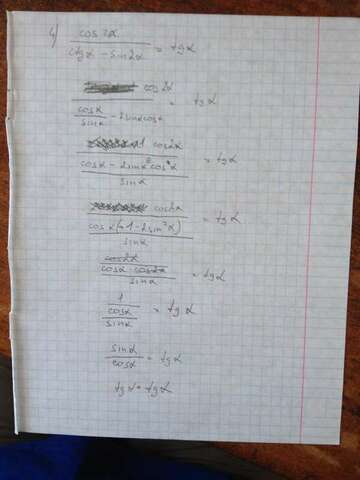 4) cos2α / (ctgα - sin2α) = tgα
cos2α / (cosα/sinα - 2sinαcosα) = tgα
cos2α / ((cosα - 2sin²α cosα)/sinα) = tgα
cos2α / (cosα(1-2sin²α)/sinα) = tgα
cos2α / (cosα·cos2α/sinα) = tgα
1 / (cosα/sinα) = tgα
sinα/cosα = tgα
tgα = tgα